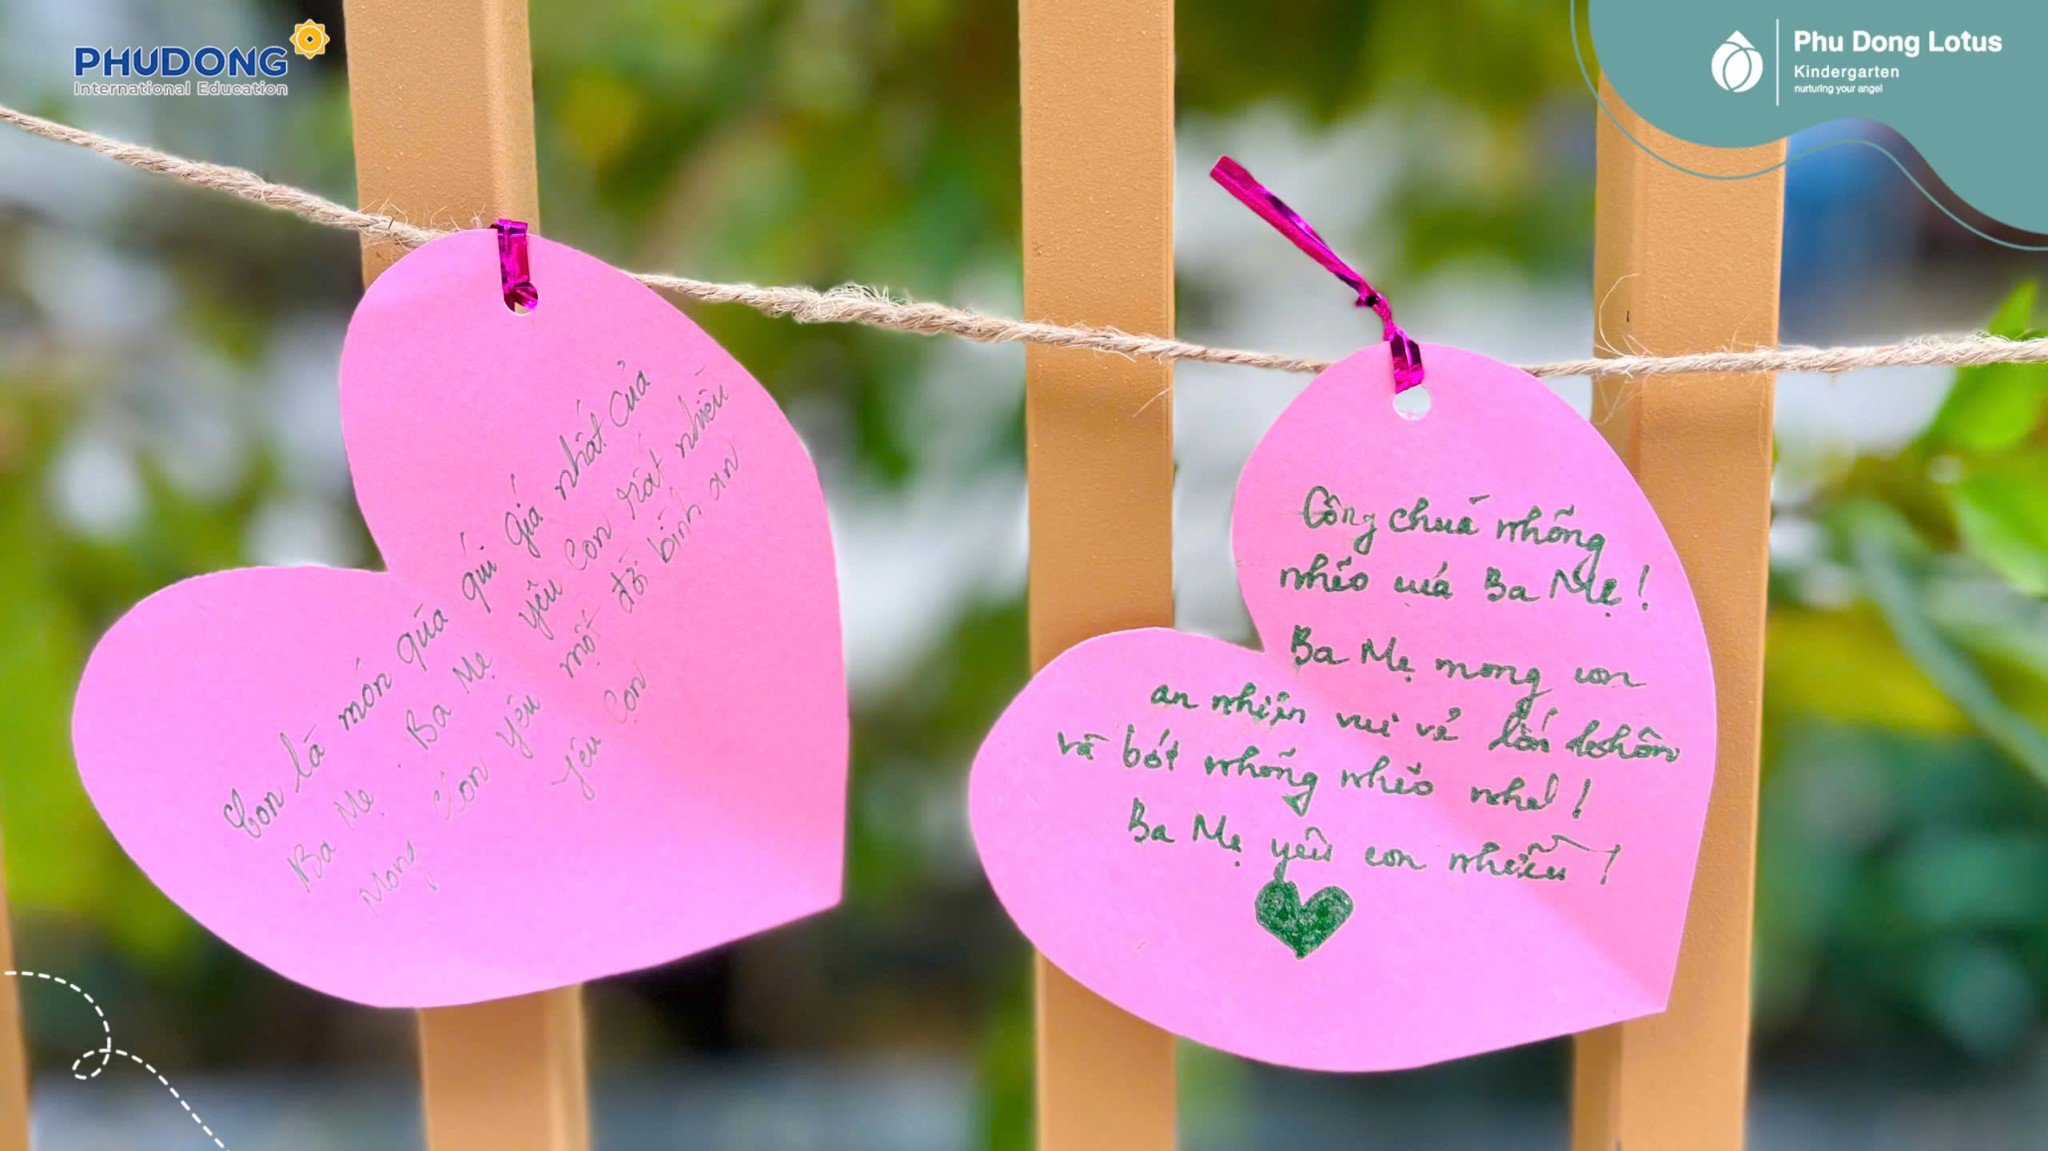 PHUDONG
International Education
Phu Dong Lotus
Kindergarten
nurturing your angel
Con là món qùa quí giá nhất của
Ba Mẹ. Ba Mẹ yêu Con rất nhiều
Mong Con yêu một đời bình an
Yêu Con
Công chúa nhõng
nhẽo của Ba Mẹ!
Ba Mẹ mong con
an nhiên vui vẻ lớn khôn
và bớt nhõng nhẽo nhé!
Ba Mẹ yêu con nhiều!